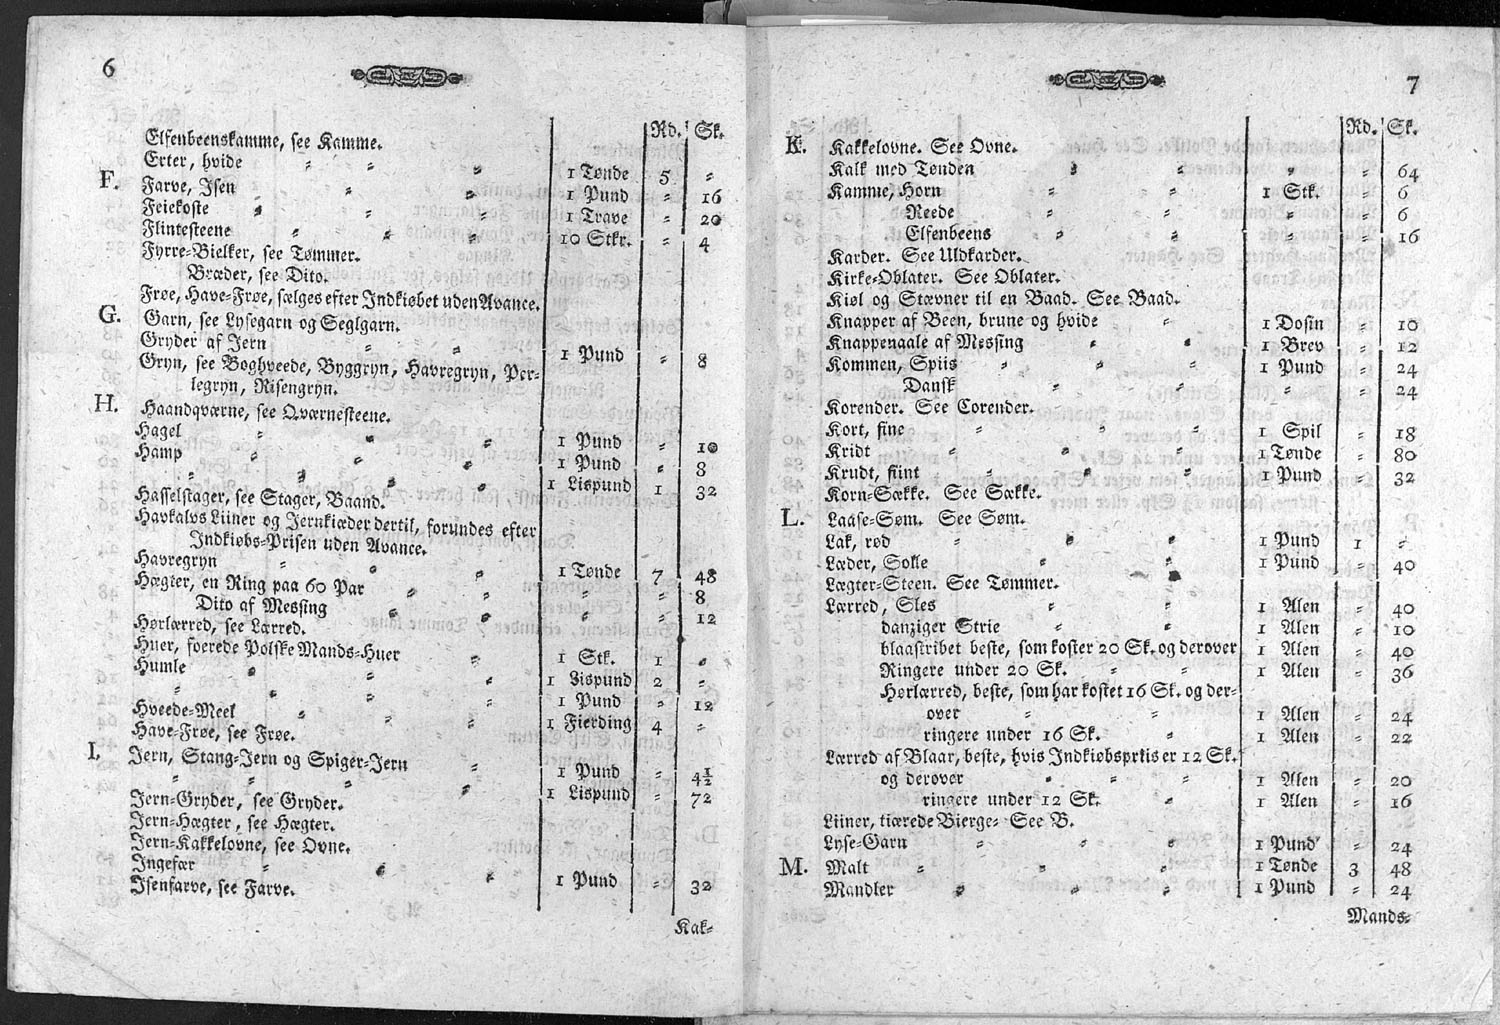 6
Rd. Sk.
Elfenbeenskamme, see Kamme.
Erter, hvide = = = 1 Tønde 5 =
F. Farve, Isen = = 1 Pund = 16
Feiekoste = = = 1 Trave = 20
Flintesteene = = = 10 Stkr. = 4
Fyrre=Bielker, see Tømmer.
Bræder, see Dito.
Frøe, Have=Frøe, sælges efter Indkiøbet uden Avance.
G. Garn, see Lysegarn og Seglgarn.
Gryder af Jern = = 1 Pund = 8
Gryn, see Boghveede, Byggryn, Havregryn, Per=
legryn, Risengryn.
H. Haandqværne, see Qværnesteene.
Hagel = = = 1 Pund = 10
Hamp = = = 1 Pund = 8
= = = 1 Lispund 1 32
Hasselstager, see Stager, Baand.
Havkalvs Liiner og Jernkiæder dertil, forundes efter
Indkiøbs=Prisen uden Avance.
Havregryn = = = 1 Tønde 7 48
Hægter, en Ring paa 60 Par = = = = 8
Dito af Messing = = = = 12
Hørlærred, see Lærred.
Huer, foerede Polske Mands=Huer = 1 Stk. 1 =
Humle = = = 1 Lispund 2 =
= = = 1 Pund = 12
Hveede=Meel = = = 1 Fierding 4 =
Have=Frøe, see Frøe.
I. Jern, Stang=Jern og Spiger=Jern = 1 Pund = 4½
= = = = 1 Lispund = 72
Jern=Gryder, see Gryder.
Jern=Hægter, see Hægter.
Jern=Kakkelovne, see Ovne.
Ingefær = = = 1 Pund = 32
Isenfarve, see Farve.
Kak=
7
Rd. Sk.
K. Kakkelovne. See Ovne.
Kalk med Tønden = = = = 64
Kamme, Horn = = 1 Stk. = 6
Reede = = = = 6
Elfenbeens = = = = 16
Karder. See Uldkarder.
Kirke=Oblater. See Oblater.
Kiøl og Stævner til en Baad. See Baad.
Knapper af Been, brune og hvide = 1 Dosin = 10
Knappenaale af Messing = = 1 Brev = 12
Kommen, Spiis = = = 1 Pund = 24
Dansk = = = = 24
Korender. See Corender.
Kort, fine = = = 1 Spil = 18
Kridt = = = 1 Tønde = 80
Krudt, fiint = = = 1 Pund = 32
Korn=Sække. See Sække.
L. Laase=Søm. See Søm.
Lak, rød = = = 1 Pund 1 =
Læder, Solle = = 1 Pund = 40
Lægter=Steen. See Tømmer.
Lærred, Sles = = 1 Alen = 40
danziger Strie = = 1 Alen = 10
blaastribet beste, som koster 20 Sk. og derover 1 Alen = 40
Ringere under 20 Sk. = = 1 Alen = 36
Hørlærred, beste, som har kostet 16 Sk. og der=
over = = 1 Alen = 24
ringere under 16 Sk. = 1 Alen = 22
Lærred af Blaar, beste, hvis Indkiøbspriis er 12 Sk.
og derover = = = 1 Alen = 20
ringere under 12 Sk. = 1 Alen = 16
Liiner, tiærede Bierge= See B.
Lyse=Garn = = = 1 Pund = 24
M. Malt = = = = 1 Tønde 3 48
Mandler = = = 1 Pund = 24
Mands=